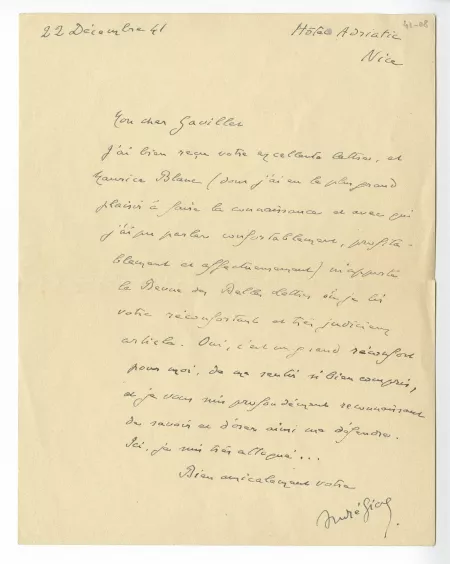 22 Décembre 41
Hôtel Adriatic
Nice
Mon cher Gavillet
J'ai bien reçu votre excellente lettre, et
Maurice Blanc (dont j'ai eu le plus grand
plaisir à faire la connaissance et avec qui
j'ai pu parler confortablement, profita-
blement et affectueusement) m'apporte
la Revue des Belles lettres où je lis
votre réconfortant et très judicieux
article. Oui, c'est un grand réconfort
pour moi, de me sentir si bien compris,
et je vous suis profondément reconnaissant
de savoir et d'oser ainsi me défendre.
Ici, je suis très attaqué...
Bien amicalement votre
André Gide.